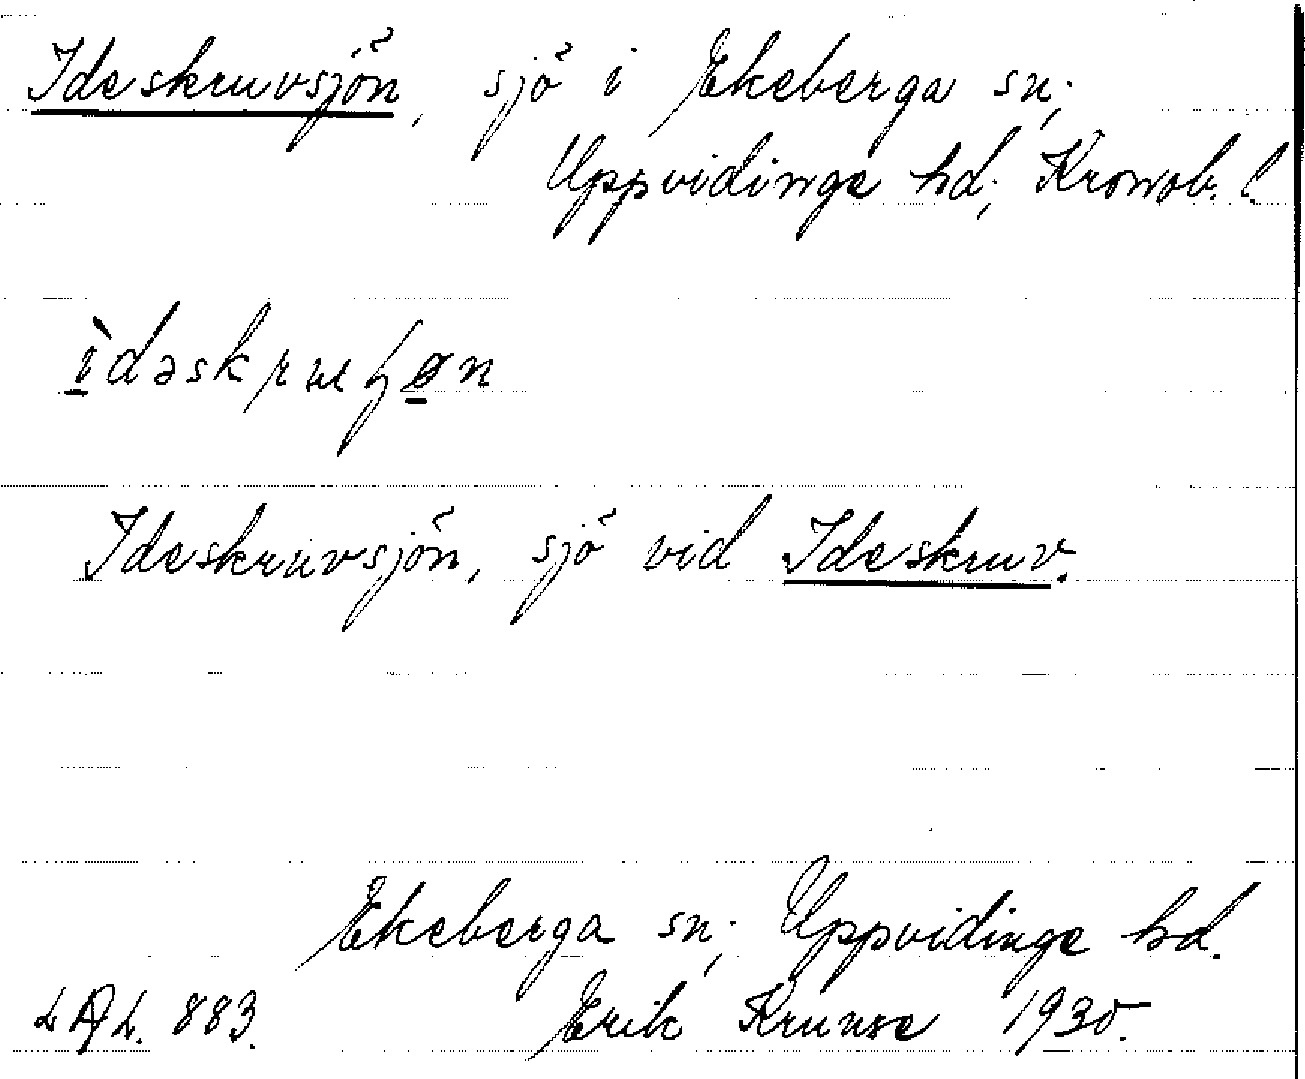 Ideskruvsjön, sjö i Ekeberga sn;
Uppvidinge hd; Kronob. l.
Ideskruvsjön, sjö vid Ideskruv.
Ekeberga sn; Uppvidinge hd.
LAL. 883. Erik Krunse 1930.